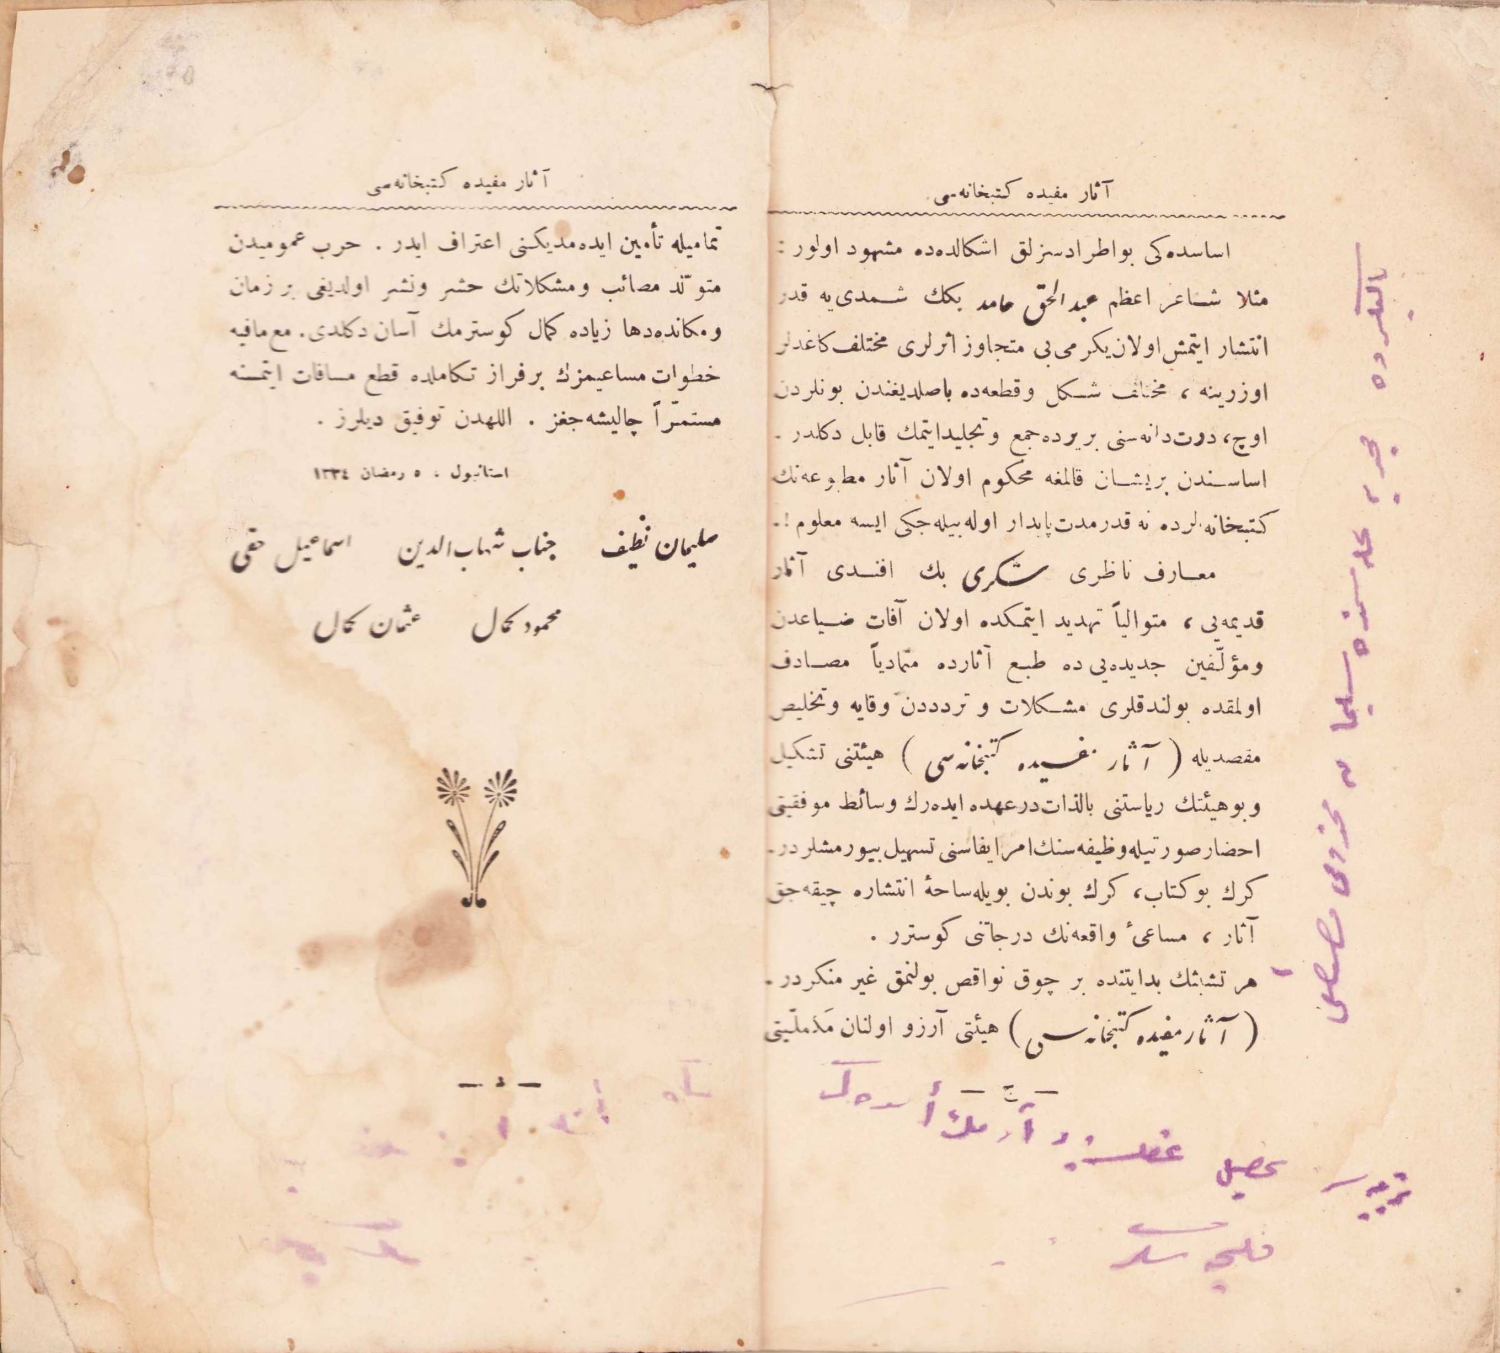 آثار مفیده کتبخانه‌سی
اساسده‌کی بواطرادسزلق اشکالده‌ده مشهود اولور :
مثلا شاعر اعظم عبدالحق حامد بکك شمدی‌یه قدر
انتشار ایتمش اولان یکرمی‌بی متجاوز اثرلری مختلف کاغدلر
اوزرینه ، مختلف شکل وقطعه‌ده باصلدیغندن بونلردن
اوچ، درت دانه‌سنی بریرده جمع وتجلید ایتمك قابل دکلدر .
اساسندن بریشان قالمغه محکوم اولان آثار مطبوعه‌نك
کتبخانه‌لرده نه قدر مدت پایدار اوله بیله‌جکی ایسه معلوم !.
معارف ناظری شکری بك افندی آثار
قدیمه‌یی ، متوالیاً تهدید ایتمکده اولان آفات ضیاعدن
ومؤلّفین جدیده‌یی ده طبع آثارده متمادیاً مصادف
اولمقده بولندقلری مشکلات و ترددن وقایه وتخلیص
مقصدیله ( آثار مفیده کتبخانه‌سی ) هیئتنی تشکیل
وبوهیئتك ریاستنی بالذات درعهده ایده‌رك وسائط موفقیتی
احضار صورتیله وظیفه‌سنك امر ایفاسنی تسهیل بیورمشلردر.
کرك بوکتاب، کرك بوندن بویله ساحهٔ انتشاره چیقه‌جق
آثار ، مساعیٔ واقعه‌نك درجاتنی کوسترر .
هر تشبثك بدایتنده بر چوق نواقص بولنمق غیر منکردر .
( آثار مفیده کتبخانه‌سی ) هیئتی آرزو اولنان مکملیتی
— ج —
آثار مفیده کتبخانه‌سی
تمامیله تأمین ایده‌مدیکنی اعتراف ایدر . حرب عمومیدن
متولّد مصائب ومشکلاتك حشر ونشر اولدیغی بر زمان
ومکانده دها زیاده کمال کوسترمك آسان دکلدی. مع‌مافیه
خطوات مساعیمزك برفراز تکاملده قطع مسافات ایتمسنه
مستمرّاً چالیشه‌جغز . اللهدن توفیق دیلرز .
استانبول ، ٥ رمضان ١٣٣٤
سلیمان نظیف جناب شهاب‌الدین اسماعیل حقی
محمود کمال عثمان کمال
— د —